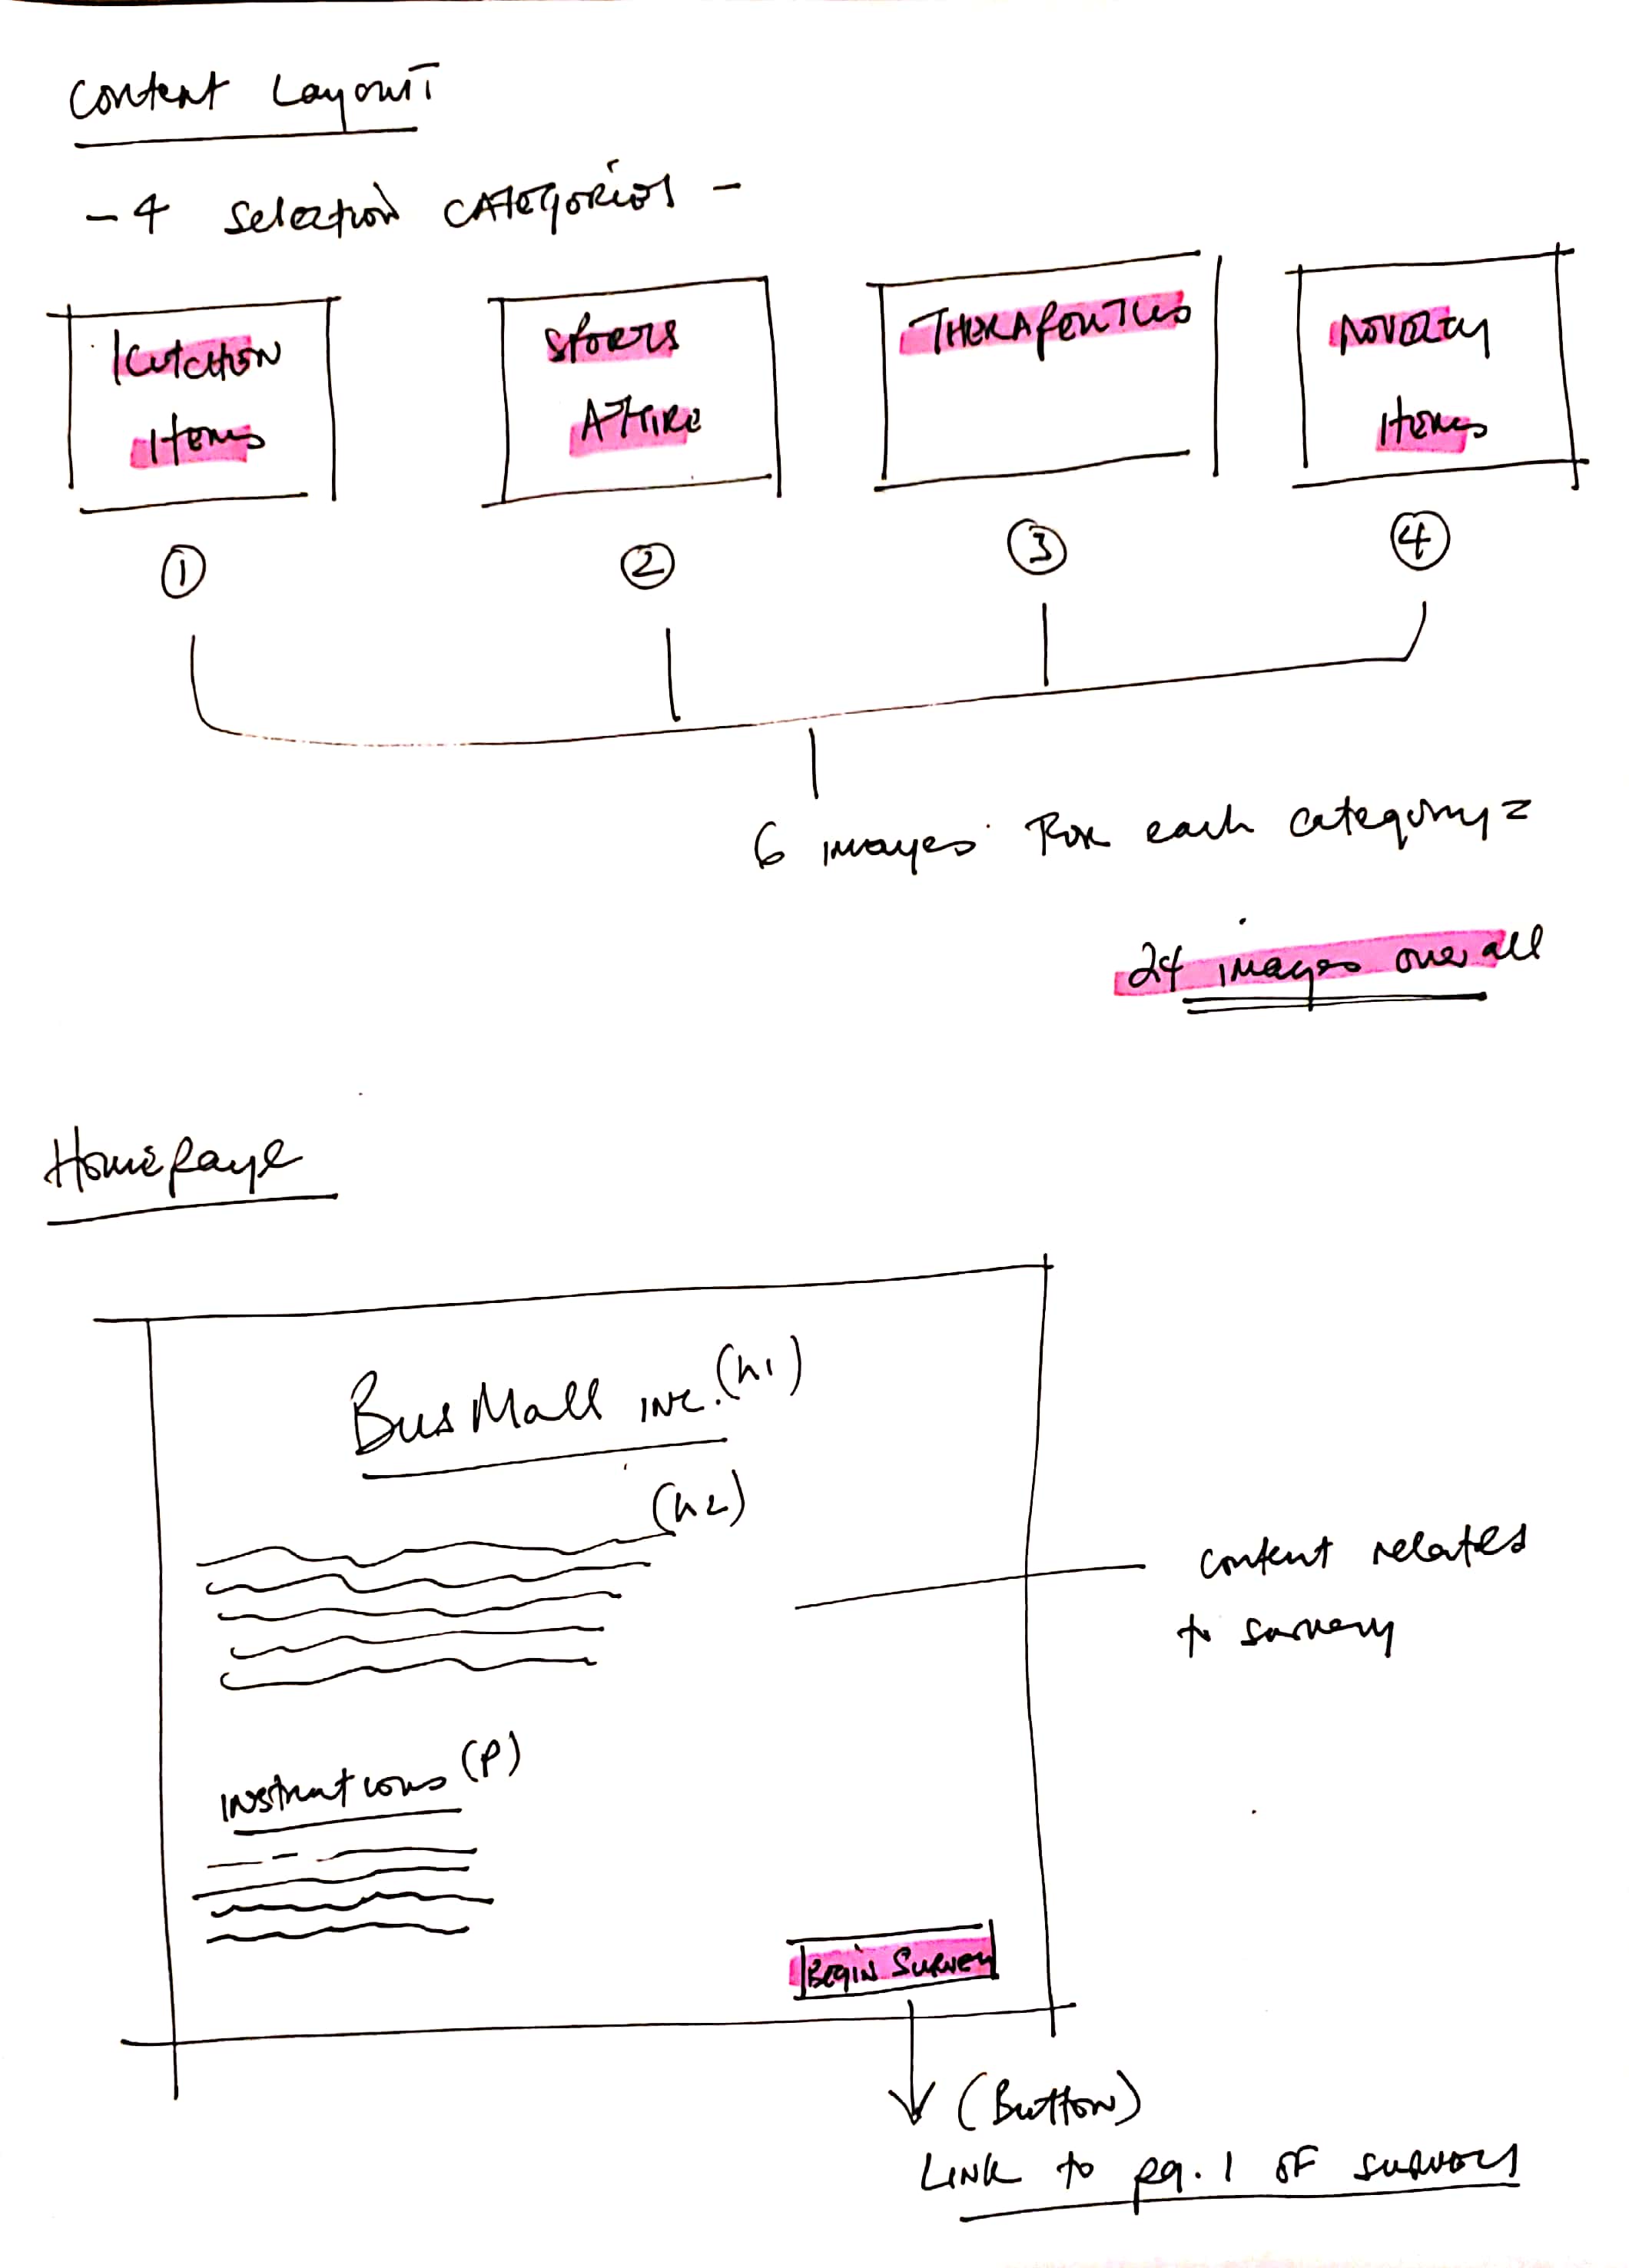 Content Layout
- 4 Selection CATEGORIES -
Kutchen
Items
Sports
Attire
THERAPEUTICS
NOVELTY
Items
1
2
3
4
6 images for each category =
24 images overall
Homepage
BusMall inc. (h1)
(h2)
content relates
to survey
instructions (p)
Begin Survey
(Button)
Link to pg. 1 of survey